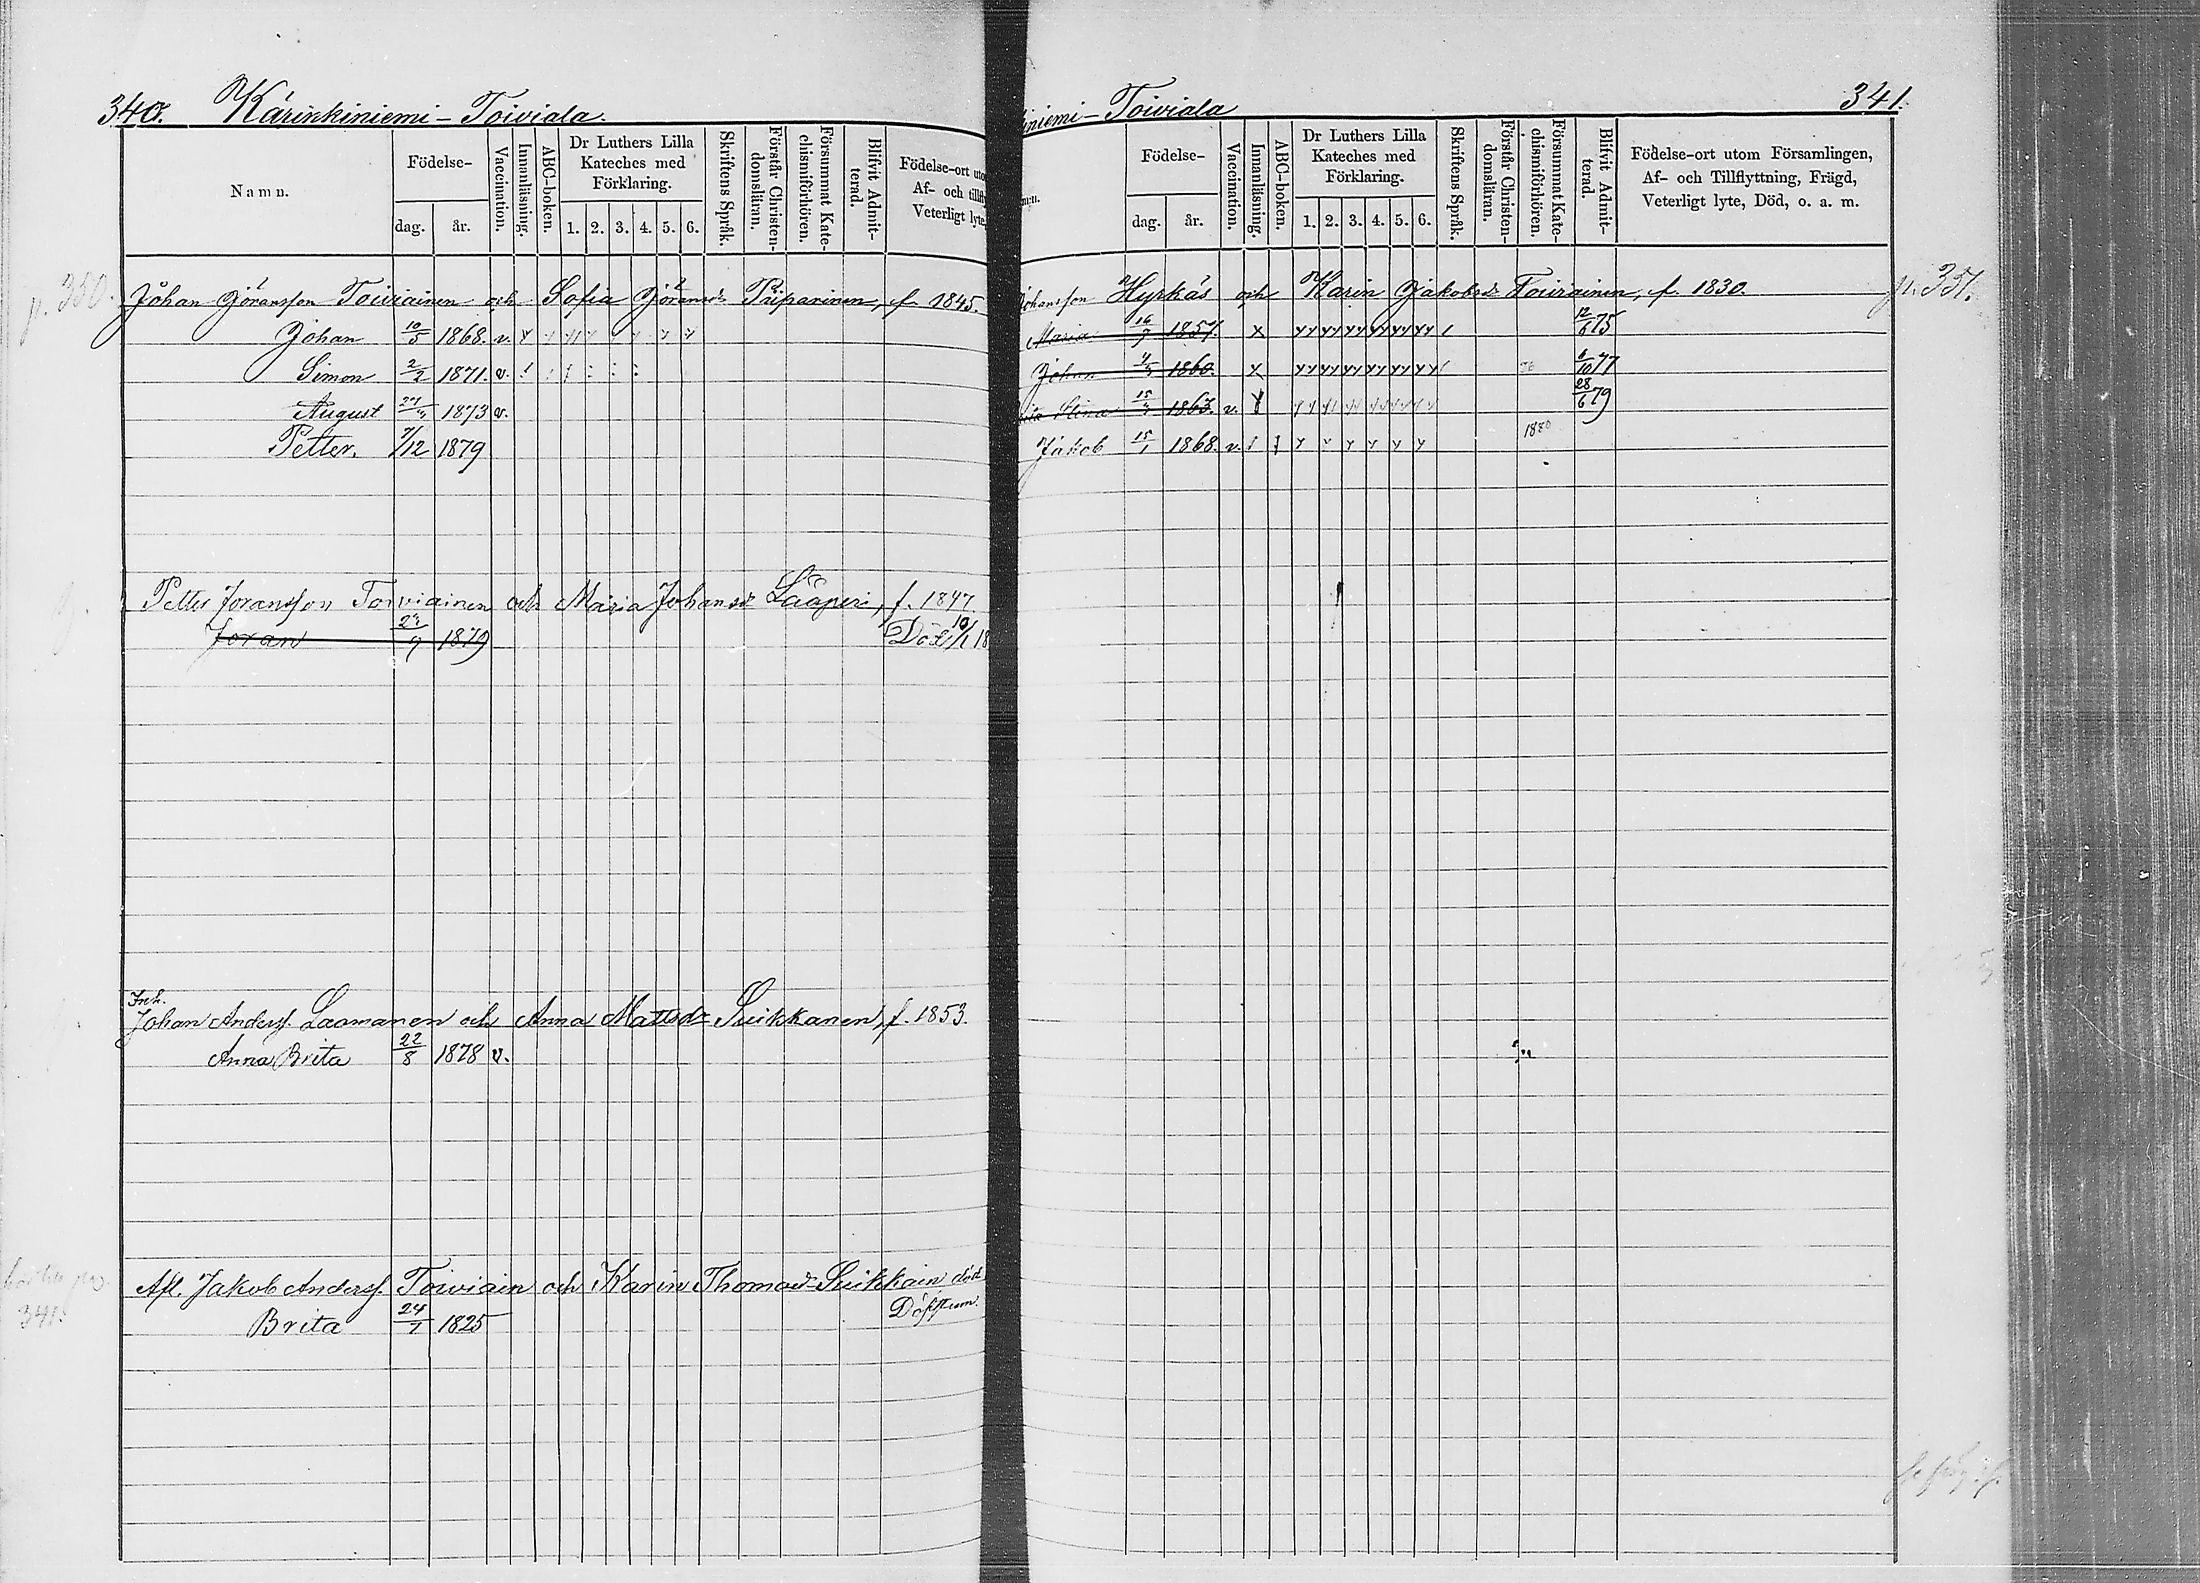 340. Kärinkiniemi-Toiviala.
Namn. Födelse- dag. år. Vaccination. Innanläsning. ABC-boken. Dr Luthers Lilla Kateches med Förklaring. 1. 2. 3. 4. 5. 6. Skriftens Språk. Förstår Christen-domsläran. Försummat Kate-chismiförhören. Blifvit Admit-terad. Födelse-ort Af- och Veterligt lyte,
p. 350.
Johan Göransson Toiviainen och Sofia Göransd:r Piiparinen, f. 1845.
Johan 10/5 1868. v.
Simon 2/2 1871. v.
August 1873 v.
Petter. 7/12 1879
Petter Joransson Toiviainen och Maria Johansd:r Lääperi, f. 1847.
Joran 1879 Död 10/1 18
Inh.
Johan Anderss. Laamanen och Anna Mattsd:r Suikkanen, f. 1853.
Anna Brita 22/8 1878 v.
341.
Afl. Jakob Anderss. Toiviain och Karin Thomasd:r Suikkain död
Brita 24/7 1825 Döfstum.
iniemi-Toiviala 341.
Födelse- dag. år. Vaccination. Innanläsning. ABC-boken. Dr Luthers Lilla Kateches med Förklaring. 1. 2. 3. 4. 5. 6. Skriftens Språk. Förstår Christen-domsläran. Försummat Kate-chismiförhören. Blifvit Admit-terad. Födelse-ort utom Församlingen, Af- och Tillflyttning, Frägd, Veterligt lyte, Död, o. a. m.
Johansson Hyrkäs och Karin Jakobsd:r Toiviainen, f. 1830. p. 351.
Maria 16/7 1857. 12/6 75
Johan 1860. 6/10 77
Stina 1863. v. 28/6 79
Jakob 15/1 1868. v. 1880